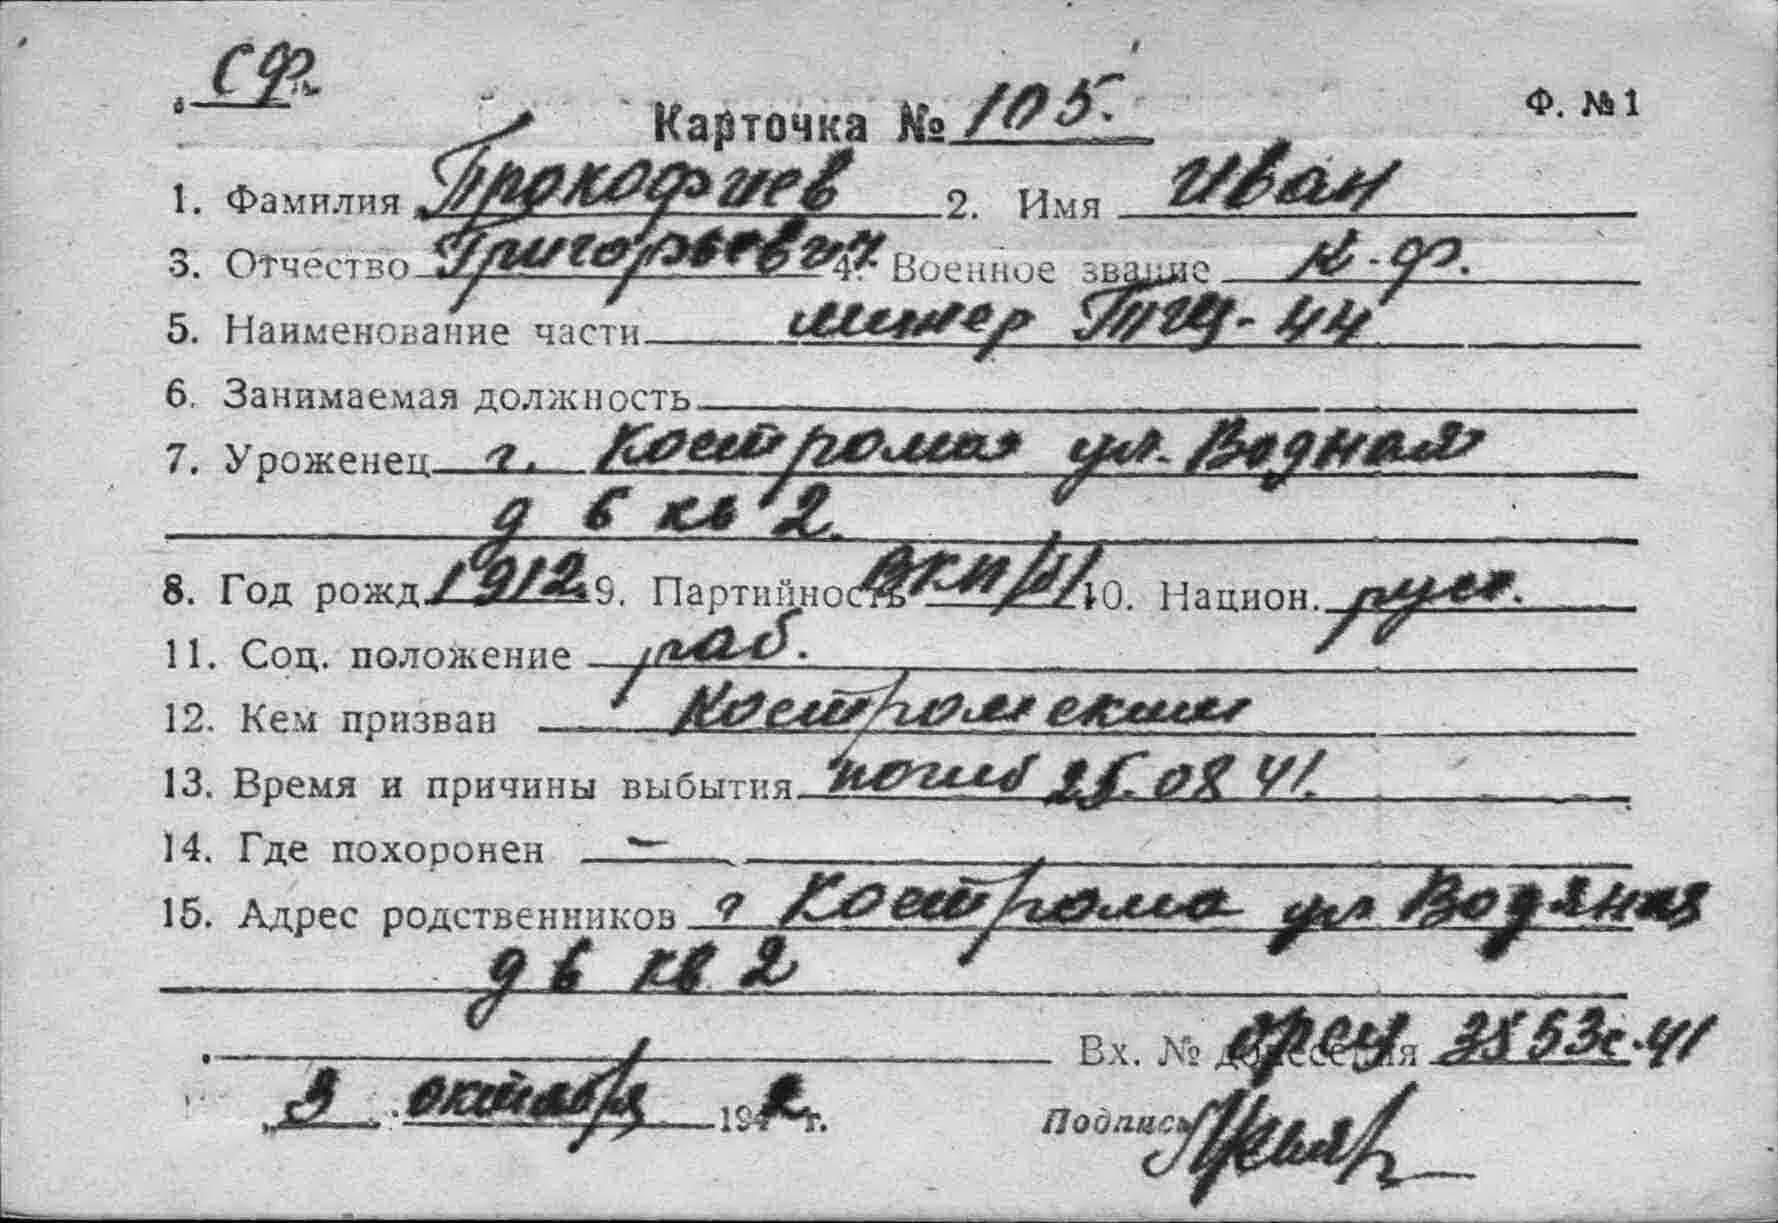 СФ.
Карточка № 105. Ф. №1
1. Фамилия Прокофиев 2. Имя Иван
3. Отчество Григорьевич 4. Военное звание к.ф.
5. Наименование части минер ТЩ-44
6. Занимаемая должность
7. Уроженец г. Кострома ул. Водная
д 6 кв 2.
8. Год рожд. 1912 9. Партийность ВКП/б/ 10. Национ. русс.
11. Соц. положение раб.
12. Кем призван Костромским
13. Время и причины выбытия погиб 25.08 41.
14. Где похоронен —
15. Адрес родственников г Кострома ул Водяная
д 6 кв 2
Вх. № донесения 3553с.41
3 октября 1942 г. Подпись